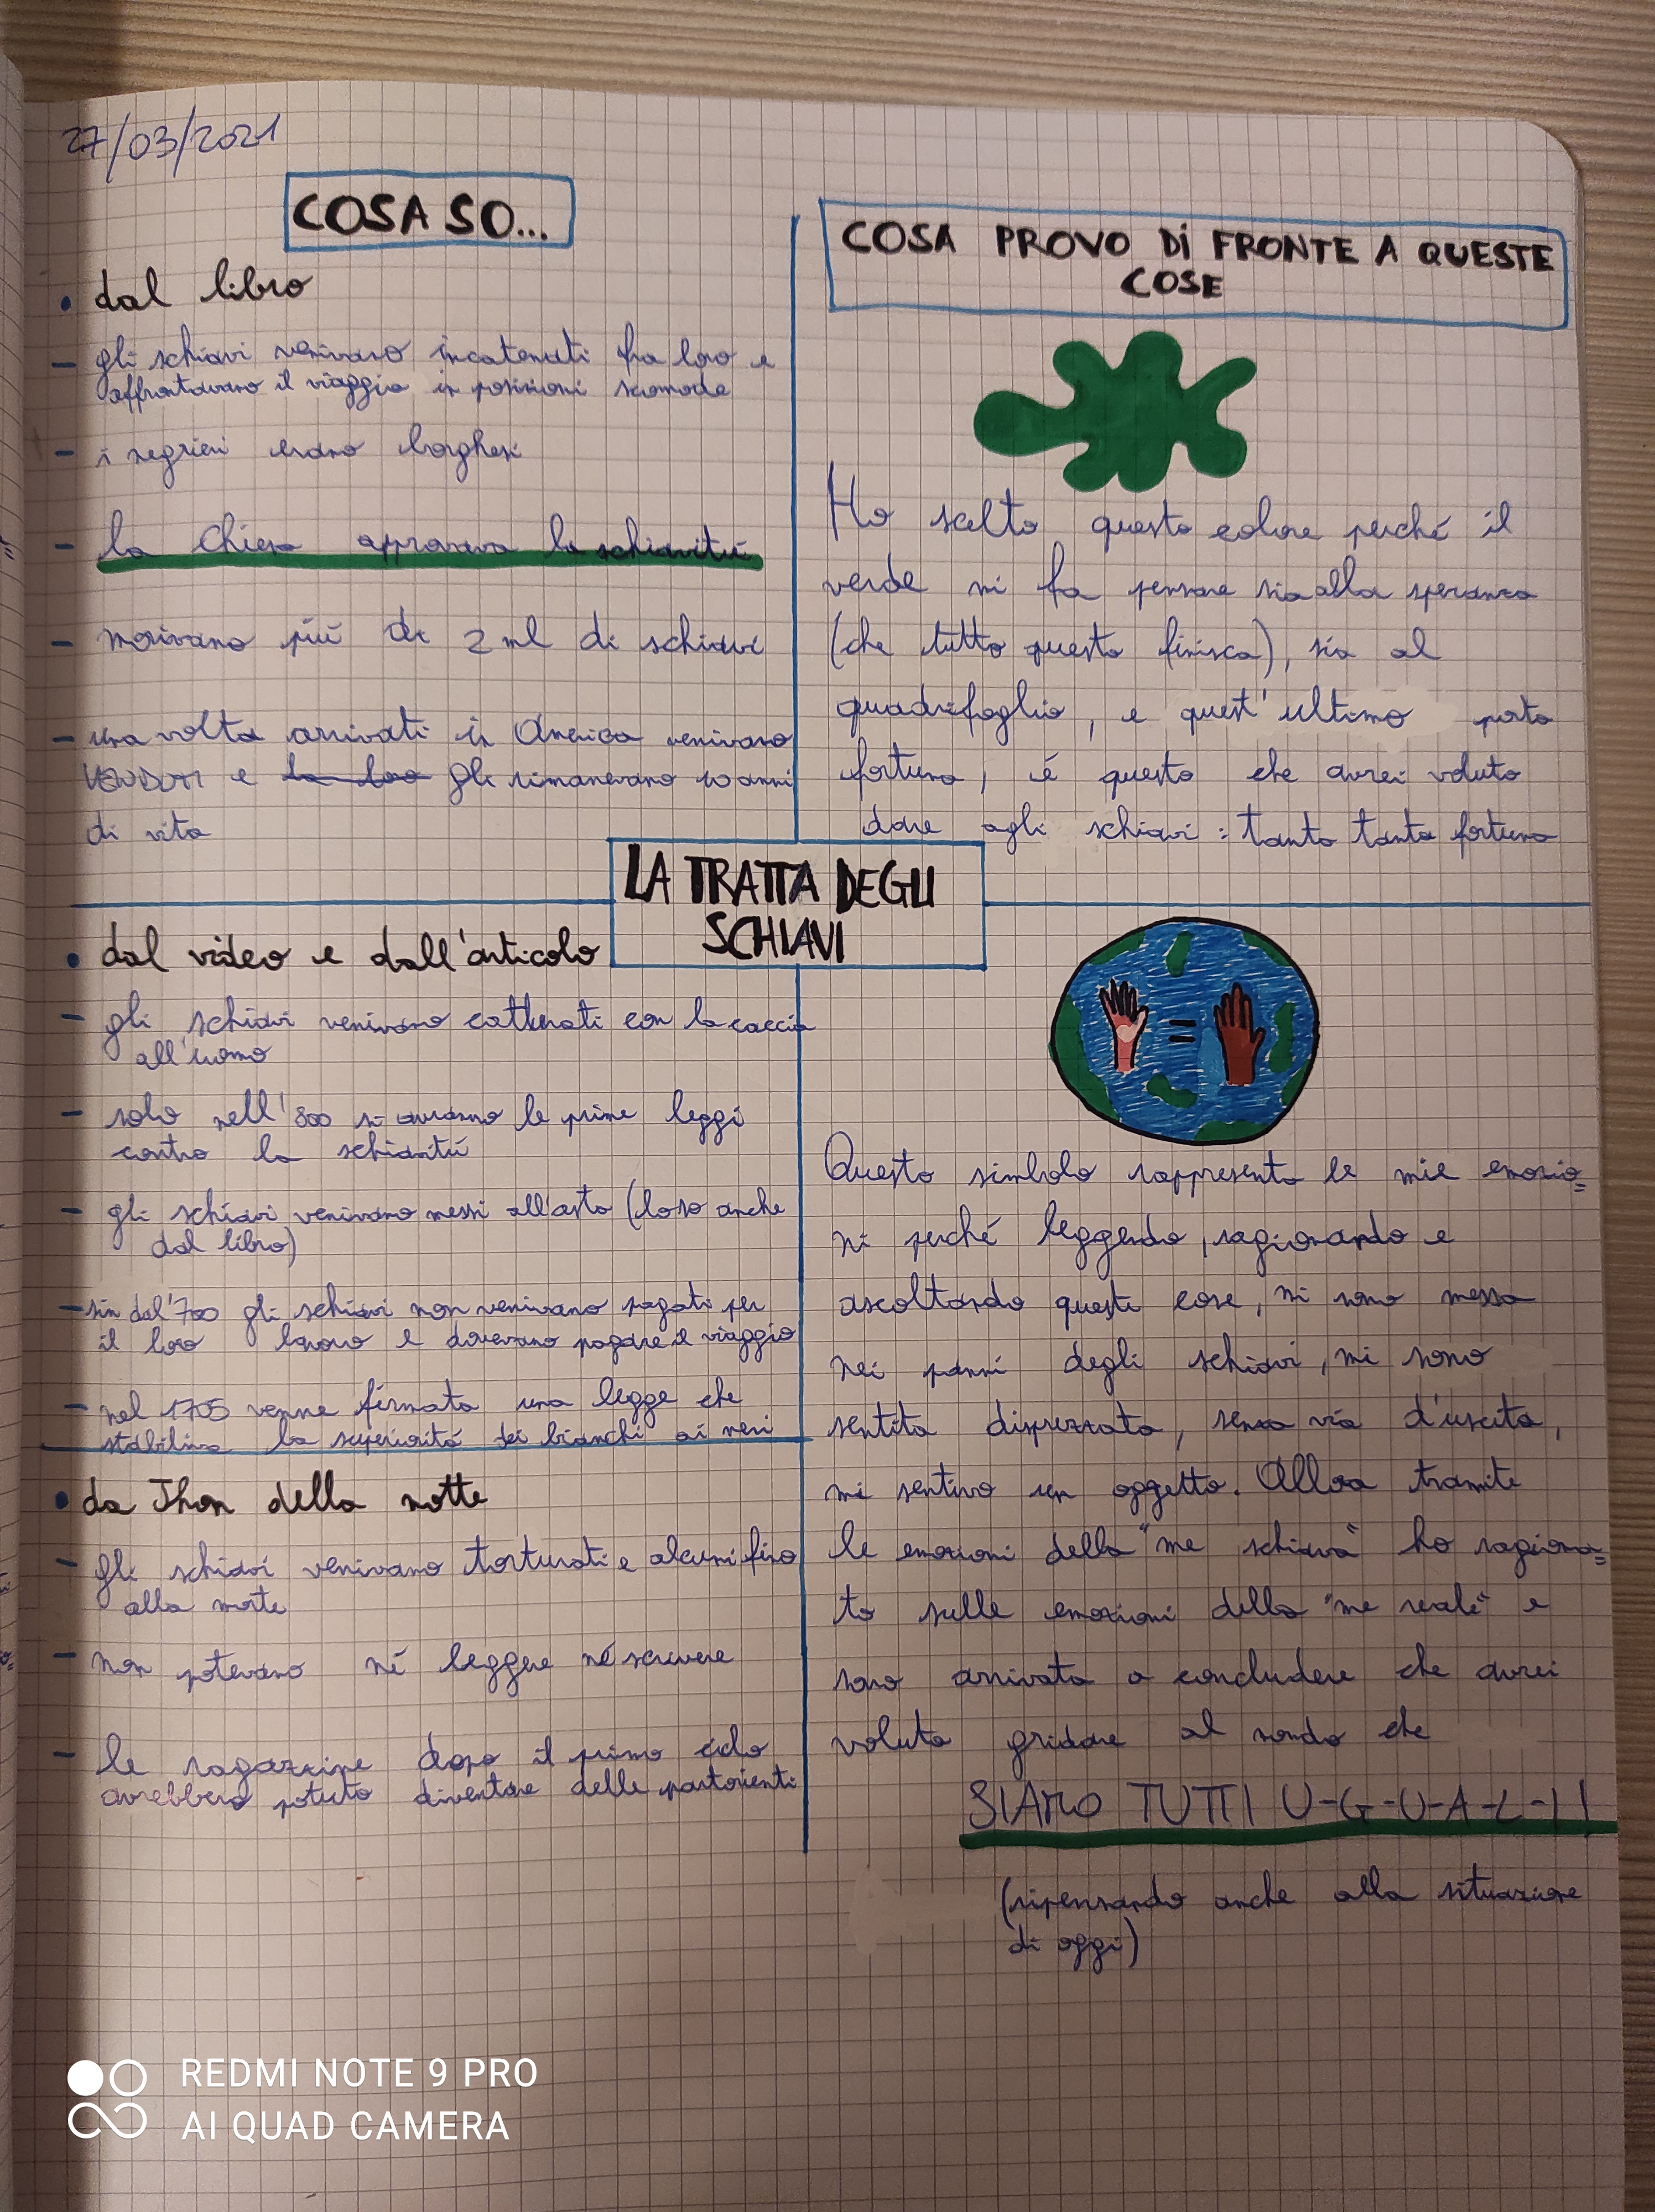 27/03/2021
COSA SO...
• dal libro
- gli schiavi venivano incatenati fra loro e
affrontavano il viaggio in posizioni scomode
- i negrieri erano borghesi
- la Chiesa approvava la schiavitú
- morivano piú di 2 ml di schiavi
- una volta arrivati in America venivano
VENDUTI e la loro gli rimanevano 10 anni
di vita
LA TRATTA DEGLI
SCHIAVI
• dal video e dall'articolo
- gli schiavi venivano catturati con la caccia
all'uomo
- solo nell'800 si avranno le prime leggi
contro la schiavitú
- gli schiavi venivano messi all'asta (lo so anche
dal libro)
- sin dal '700 gli schiavi non venivano pagati per
il loro lavoro e dovevano pagare il viaggio
- nel 1705 venne firmata una legge che
stabiliva la superioritá dei bianchi ai neri
• da Jhon della notte
- gli schiavi venivano torturati e alcuni fino
alla morte
- non potevano né leggere né scrivere
- le ragazzine dopo il primo ciclo
avrebbero potuto diventare delle partorienti
COSA PROVO DI FRONTE A QUESTE
COSE
Ho scelto questo colore perché il
verde mi fa pensare sia alla speranza
(che tutto questo finisca), sia al
quadrifoglio, e quest'ultimo porta
fortuna, é questo che avrei voluto
dare agli schiavi: tanta tanta fortuna
=
Questo simbolo rappresenta le mie emozio=
ni perché leggendo, ragionando e
ascoltando queste cose, mi sono messa
nei panni degli schiavi, mi sono
sentita disprezzata, senza via d'uscita,
mi sentivo un oggetto. Allora tramite
le emozioni della "me schiava" ho ragiona=
to sulle emozioni della "me reale" e
sono arrivata a concludere che avrei
voluto gridare al mondo che
SIAMO TUTTI U-G-U-A-L-I!
(ripensando anche alla situazione
di oggi)
REDMI NOTE 9 PRO
AI QUAD CAMERA